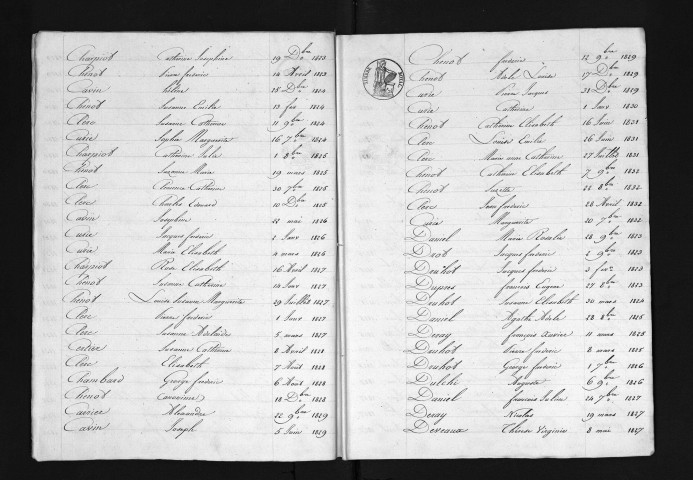 Charpiot Catherine Joséphine 19 Dbre 1823
Chenot Pierre frédéric 14 Avril 1823
Cavin hélène 18 Dbre 1824
Chenot Susanne Emilie 13 fev 1824
Clerc Susanne Catherine 11 9bre 1824
Curie Sophie Marguerite 16 7bre 1824
Charpiot Catherine Julie 1 8bre 1825
Chenot Suzanne Marie 19 mars 1825
Clerc Catherine 30 7bre 1825
Clerc Charles Edouard 10 Dbre 1825
Cavin Joséphine 22 mai 1826
Curie Jacques frédéric 2 Janv 1826
Curie Marie Elisabeth 4 mars 1826
Charpiot Rose Elisabeth 16 Avril 1827
Chenot Susanne Catherine 14 Janv 1827
Chenot Louise Susanne Marguerite 29 Juillet 1827
Clerc Pierre frédéric 1 Janv 1827
Clerc Susanne Adelaide 5 mars 1827
Cortier Susanne Catherine 8 Avril 1828
Clerc Elisabeth 7 Août 1828
Chambard George frédéric 6 Août 1828
Chenot 18 Dbre 1828
Alexandre 22 9bre 1829
Cavin Joseph 5 Juin 1829
Chenot frédéric 12 9bre 1829
Chenot Adele Louise 17 Dbre 1829
Curie Pierre Jacques 31 Dbre 1829
Curie Catherine 1 Janv 1830
Chenot Catherine Elisabeth 16 Juin 1831
Clerc Louise Emilie 26 Juin 1831
Clerc Marie anne Catherine 27 Juillet 1831
Chenot Catherine Elisabeth 7 9bre 1832
Chenot Suzette 22 8bre 1832
Clerc Jean frédéric 28 Avril 1832
Curie Marguerite 20 7bre 1832
Daniel Marie Rosalie 28 9bre 1823
Drot Jacques frédéric 2 9bre 1823
Druhot Jacques frédéric 3 fev 1823
Dupres françois Eugene 27 8bre 1823
Druhot Susanne Elisabeth 30 mars 1824
Daniel Agathe Adele 28 8bre 1825
Deray françois Xavier 11 mars 1825
Druhot Pierre frédéric 8 mars 1825
Druhot George frédéric 1 7bre 1826
Auguste 6 9bre 1826
Daniel francois Julien 24 7bre 1827
Deray Nicolas 19 mars 1827
Deveaux Therese Virginie 8 mai 1827